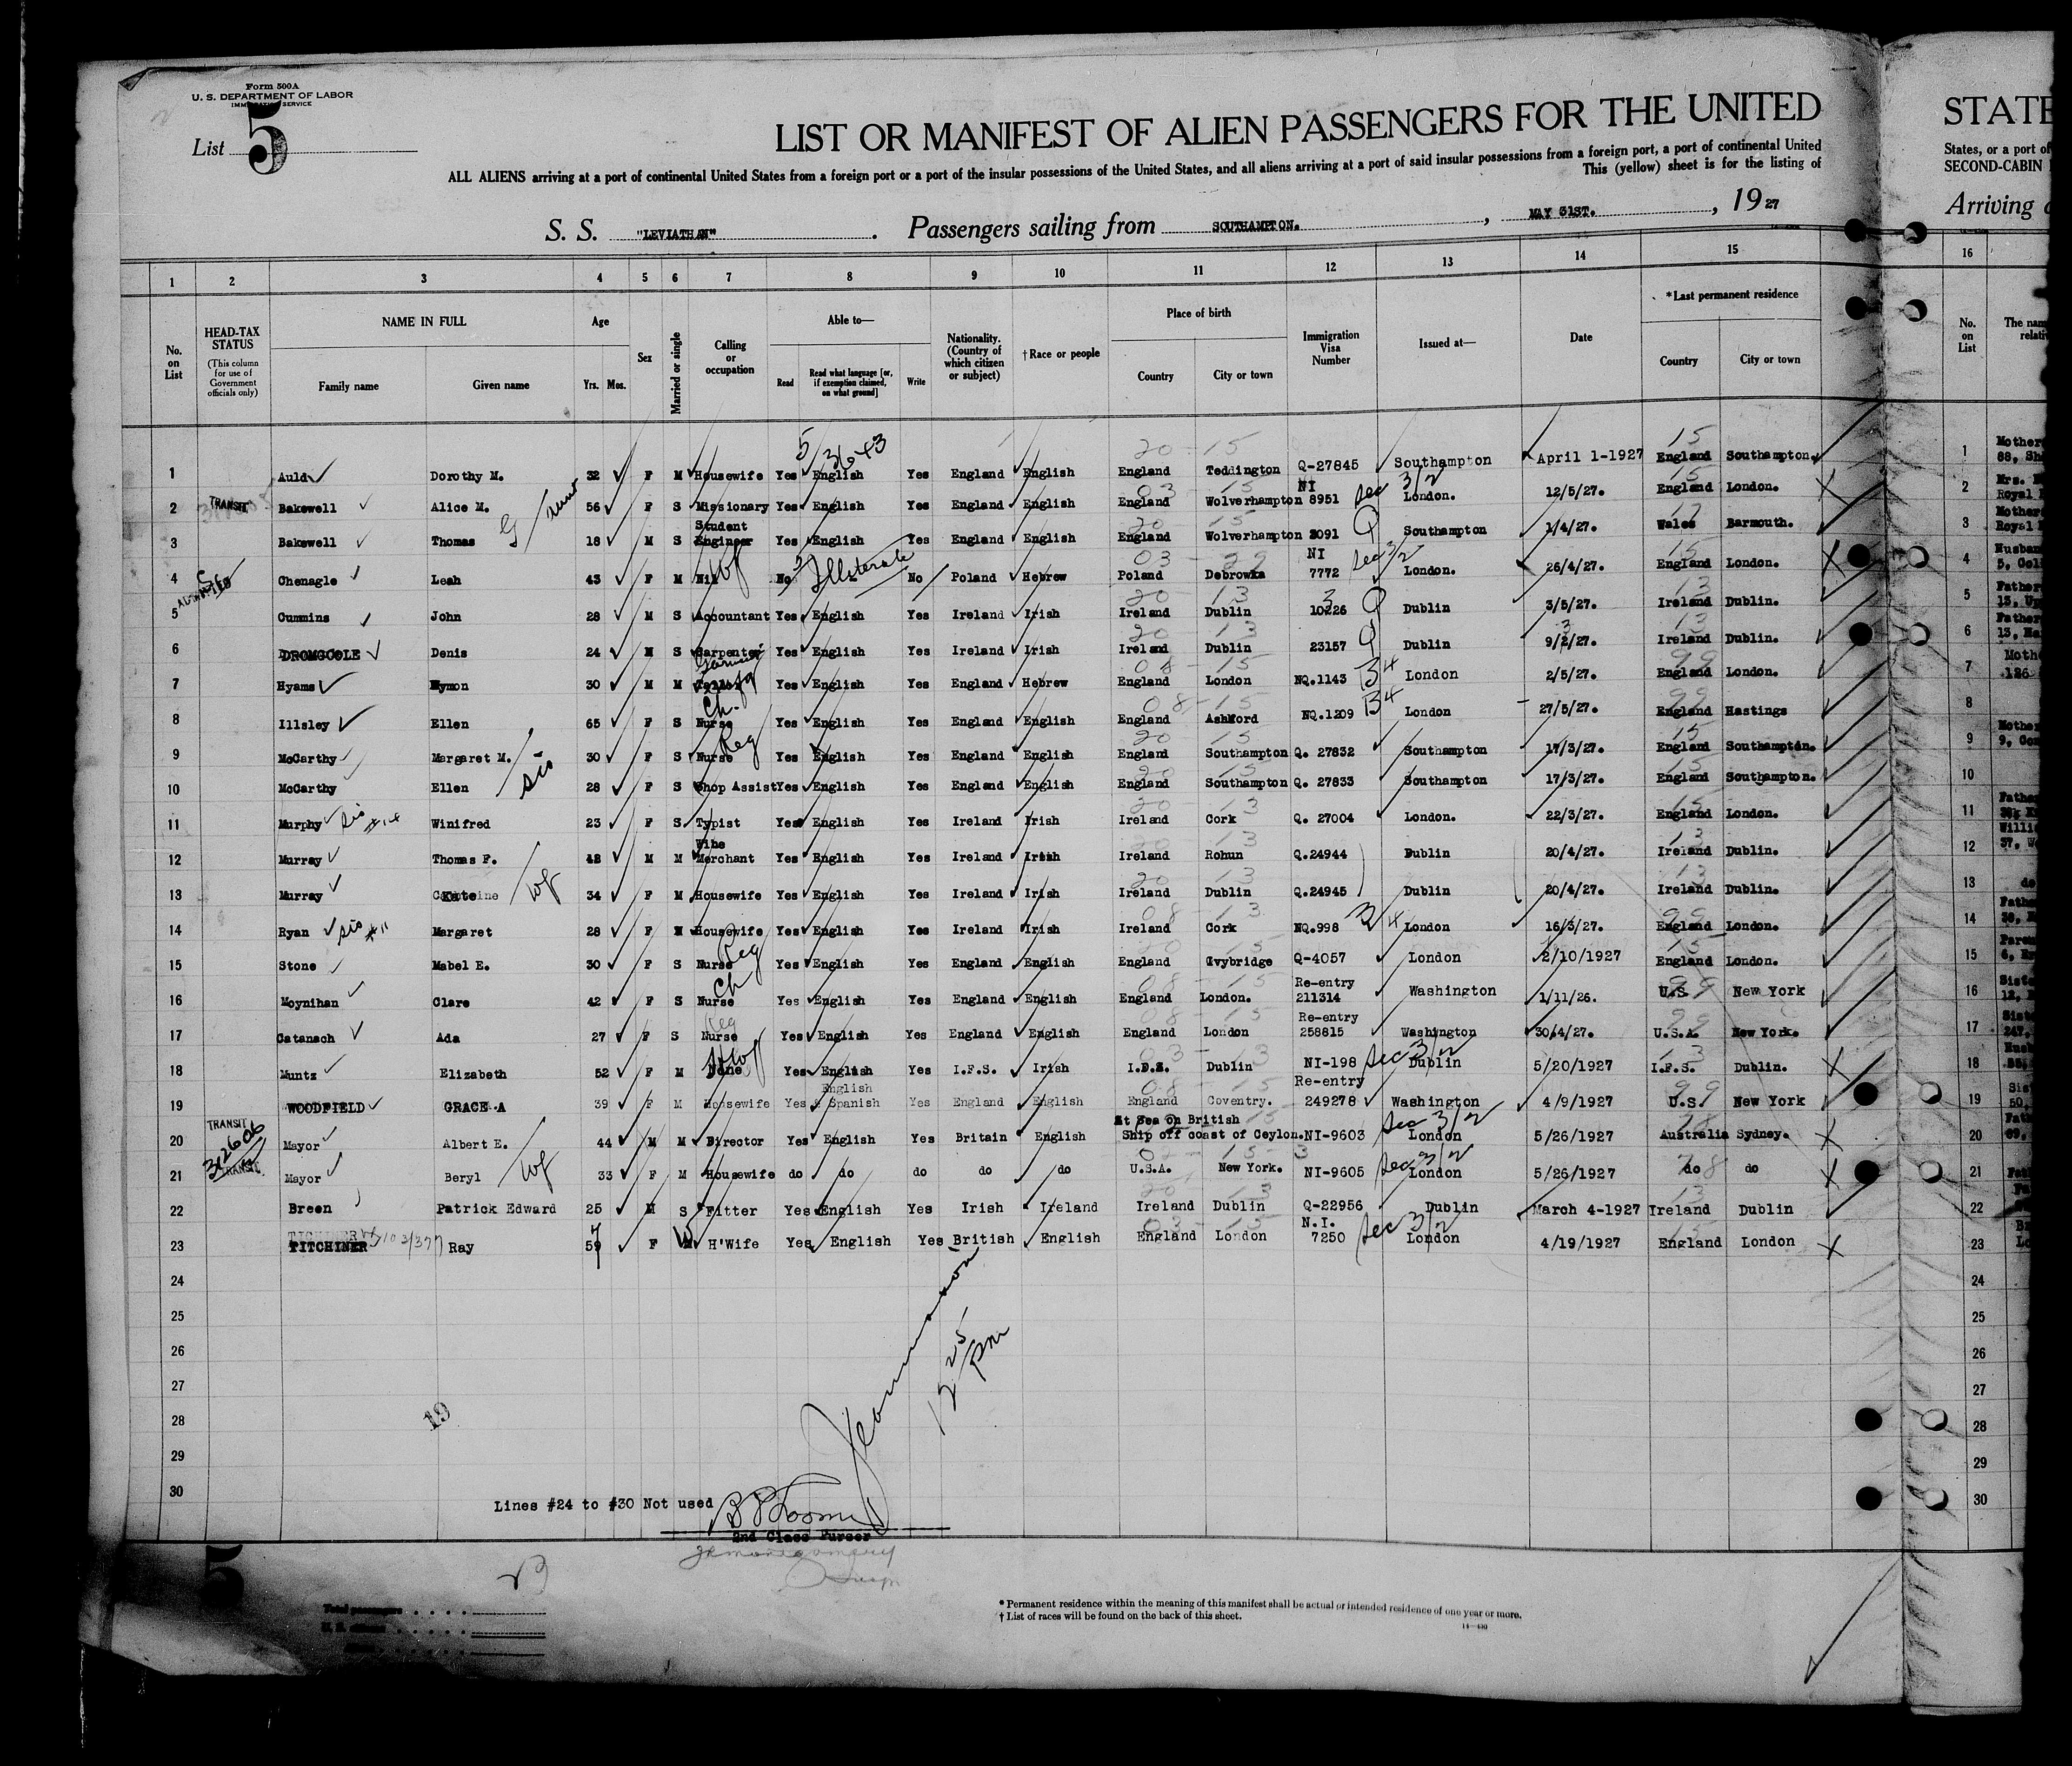 Form 500A
U. S. DEPARTMENT OF LABOR
IMMIGRATION SERVICE
List 5
LIST OR MANIFEST OF ALIEN PASSENGERS FOR THE UNITED
STATE
ALL ALIENS arriving at a port of continental United States from a foreign port or a port of the insular possessions of the United States, and all aliens arriving at a port of said insular possessions from a foreign port, a port of continental United
States, or a port of
This (yellow) sheet is for the listing of
SECOND-CABIN
S. S. "LEVIATHAN" . Passengers sailing from SOUTHAMPTON. , MAY 31ST. , 19 27
Arriving
1 2 3 4 5 6 7 8 9 10 11 12 13 14 15 16
No. on List
HEAD-TAX STATUS (This column for use of Government officials only)
NAME IN FULL
Family name
Given name
Age
Yrs. Mos.
Sex
Married or single
Calling or occupation
Able to—
Read
Read what language [or, if exemption claimed, on what ground]
Write
Nationality. (Country of which citizen or subject)
†Race or people
Place of birth
Country
City or town
Immigration Visa Number
Issued at—
Date
*Last permanent residence
Country
City or town
No. on List
5/3643
1 Auld Dorothy M. 32 F M Housewife Yes English Yes England English England Teddington Q-27845 Southampton April 1-1927 England Southampton. 1
2 TRANSIT Bakewell Alice M. 56 F S Missionary Yes English Yes England English England Wolverhampton NI 8951 Sec 3/2 London. 12/5/27. England London. 2
3 Bakewell Thomas 18 M S Student Engineer Yes English Yes England English England Wolverhampton 2091 Q Southampton 1/4/27. Wales Barmouth. 3
4 Chenagle Leah 43 F M Nil No Illiterate No Poland Hebrew Poland Debrowka NI 7772 Sec 3/2 London. 26/4/27. England London. 4
5 Cummins John 28 M S Accountant Yes English Yes Ireland Irish Ireland Dublin 10226 Q Dublin 3/5/27. Ireland Dublin. 5
6 DROMGOOLE Denis 24 M S Carpenter Yes English Yes Ireland Irish Ireland Dublin 23157 Q Dublin 9/2/27. Ireland Dublin. 6
7 Hyams Hymon 30 M M Yes English Yes England Hebrew England London NQ.1143 34 London 2/5/27. England London. 7
8 Illsley Ellen 65 F S Ch. Nurse Yes English Yes England English England Ashford NQ.1209 34 London 27/5/27. England Hastings 8
9 McCarthy Margaret M. 30 F S Nurse Reg Yes English Yes England English England Southampton Q. 27832 Southampton 17/3/27. England Southampton. 9
10 McCarthy Ellen sis 28 F S Shop Assist Yes English Yes England English England Southampton Q. 27833 Southampton 17/3/27. England Southampton. 10
11 Murphy sis #14 Winifred 23 F S Typist Yes English Yes Ireland Irish Ireland Cork Q. 27004 London. 22/3/27. England London. 11
12 Murray Thomas F. 48 M M Wine Merchant Yes English Yes Ireland Irish Ireland Rohun Q.24944 Dublin 20/4/27. Ireland Dublin. 12
13 Murray wf 34 F M Housewife Yes English Yes Ireland Irish Ireland Dublin Q.24945 Dublin 20/4/27. Ireland Dublin. 13
14 Ryan sis #11 Margaret 28 F M Housewife Yes English Yes Ireland Irish Ireland Cork NQ.998 34 London 16/3/27. England London. 14
15 Stone Mabel E. 30 F S Nurse Reg Yes English Yes England English England Ivybridge Q-4057 London 2/10/1927 England London. 15
16 Moynihan Clare 42 F S Ch Nurse Yes English Yes England English England London. Re-entry 211314 Washington 1/11/26. U.S. New York 16
17 Catanach Ada 27 F S Reg Nurse Yes English Yes England English England London Re-entry 258815 Washington 30/4/27. U.S.A. New York. 17
18 Muntz Elizabeth 52 F M None Yes English Yes I.F.S. Irish I.F.S. Dublin NI-198 Sec 3/2 Dublin 5/20/1927 I.F.S. Dublin. 18
19 WOODFIELD GRACE A 39 F M Housewife Yes English & Spanish Yes England English England Coventry. Re-entry 249278 Washington 4/9/1927 U.S. New York 19
20 TRANSIT Mayor Albert E. 44 M M Director Yes English Yes Britain English At Sea on British Ship off coast of Ceylon. NI-9603 Sec 3/2 London 5/26/1927 Australia Sydney. 20
21 TRANSIT Mayor Beryl wf 33 F M Housewife do do do do do U.S.A. New York. NI-9605 Sec 3/2 London 5/26/1927 do do 21
22 Breen Patrick Edward 25 M S Fitter Yes English Yes Irish Ireland Ireland Dublin Q-22956 Dublin March 4-1927 Ireland Dublin 22
23 TITCHINER Ray F W H'Wife Yes English Yes British English England London N.I. 7250 Sec 3/2 London 4/19/1927 England London 23
24 24
25 25
26 26
27 27
28 28
29 29
30 30
12 25 pm
19
Lines #24 to #30 Not used
2nd Class Purser
5
Total passengers
* Permanent residence within the meaning of this manifest shall be actual or intended residence of one year or more.
† List of races will be found on the back of this sheet.